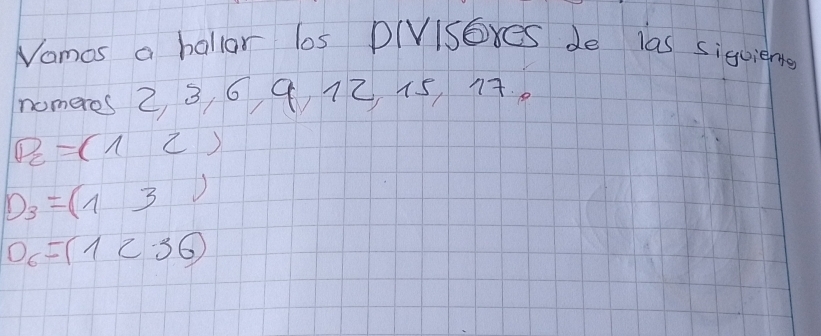 Vamos a hallar los DIVISores de las siguientes
nomeros 2, 3, 6, 9, 12, 15, 17.
D2 = (1 2)
D3 = (1 3)
D6 = (1 2 3 6)